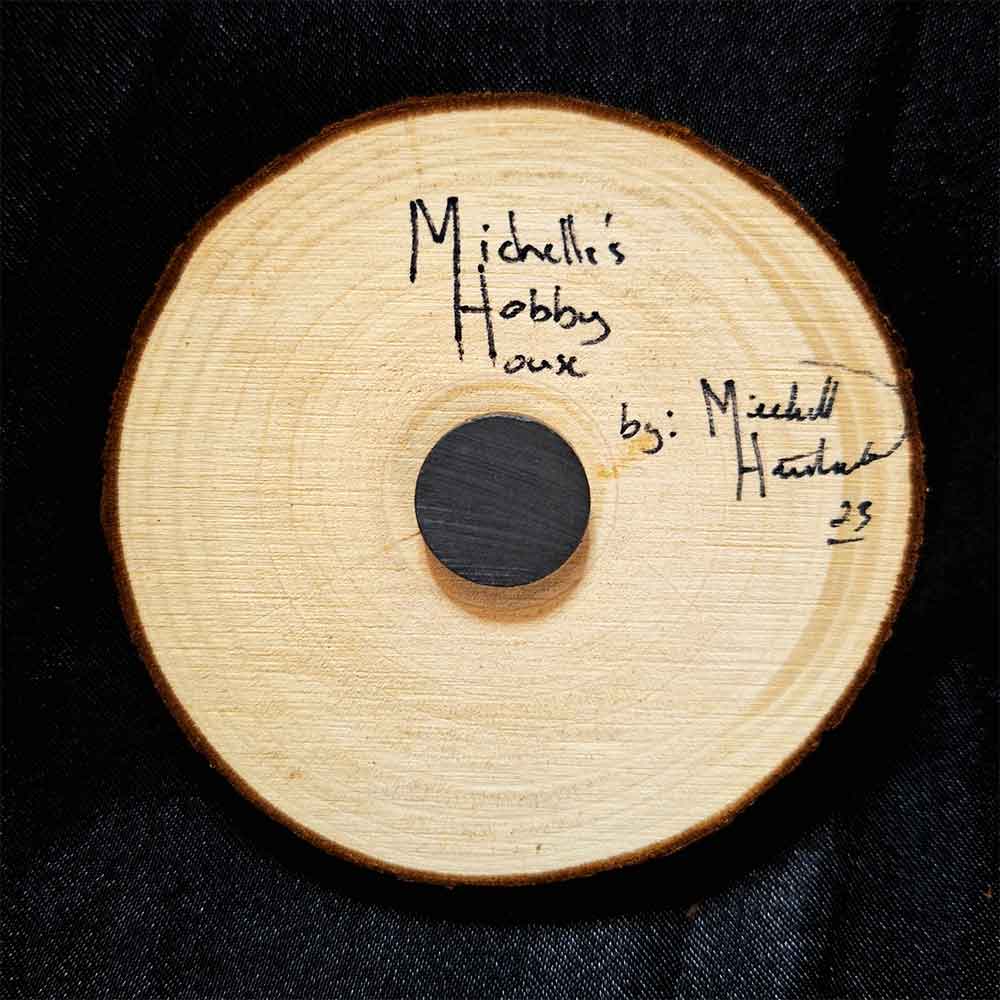 Michelle's
Hobby
House
by: Michell
23